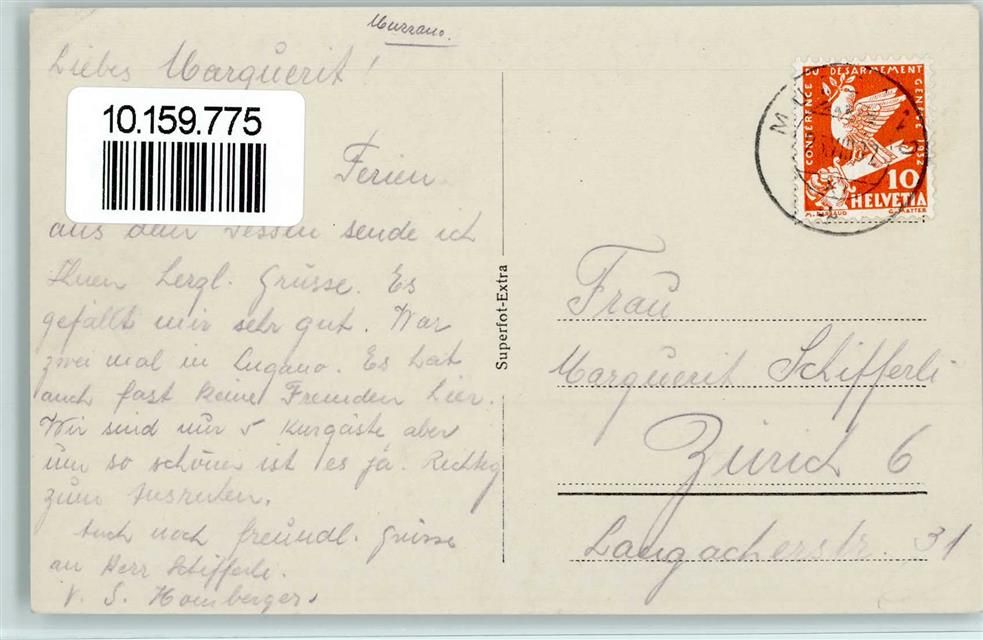 Murrano.
Liebes Marguerit!
10.159.775
Ferien
aus dem Tessin sende ich
Ihnen herzl. Grüsse. Es
gefällt mir sehr gut. War
zwei mal in Lugano. Es hat
auch fast keine Fremden hier.
Wir sind nur 5 Kurgäste aber
um so schöner ist es ja. Richtig
zum Ausruhen.
Auch noch freundl. Grüsse
an Herr Schifferli.
v. S. Homberger.
Superfot-Extra
CONFERENCE DU DESARMEMENT GENEVE 1932
10
HELVETIA
Frau
Marguerit Schifferli
Zürich 6
Langackerstr. 31